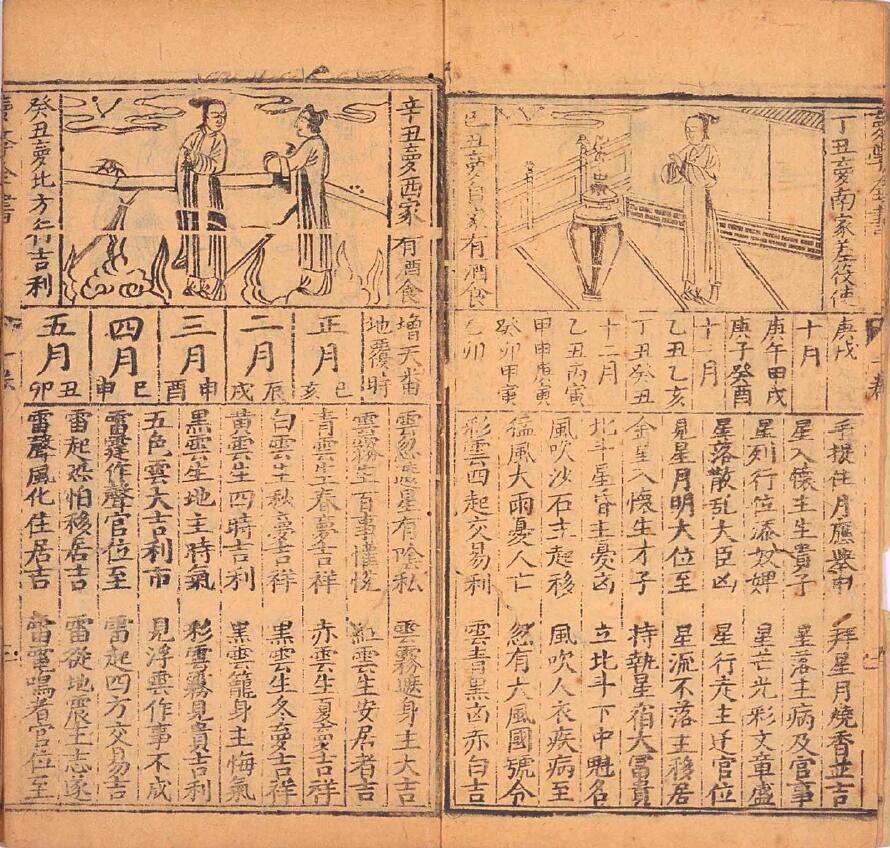 丁丑夢南家差役使
己丑夢自家有酒食
庚戌
十月
庚子癸酉
十一月
乙丑乙亥
丁丑癸丑
十二月
乙丑丙寅
甲申庚寅
癸卯甲寅
乙卯
手捉住月應舉中 拜星月燒香並吉
星入懷主生貴子 星落主病及官事
星列行位添奴婢 星芒光彩文章盛
星落散乱大臣凶 星行走主迁官位
見星月明大位至 星流不落主移居
金星入懷生才子 持執星宿大富貴
北斗星昏主憂凶 立北斗下中魁名
風吹沙石主起移 風吹人衣疾病至
猛風大雨憂人亡 忽有大風國號令
彩雲四起交易利 雲青黑凶赤白吉
辛丑夢西家有酒食
癸丑夢北方上吉利
增天番
地覆時
正月 巳亥
二月 辰戌
三月 申酉
四月 巳申
五月 丑卯
雲忽遮星有陰私 雲霧遮身主大吉
雲霧生百事懽悅 紅雲生安居者吉
青雲生春夢吉祥 赤雲生夏夢吉祥
白雲生秋夢吉祥 黑雲生冬夢吉祥
黃雲生四時吉利 黑雲籠身主悔氣
黑雲生地主時氣 彩雲霧見貴吉利
五色雲大吉利市 見浮雲作事不成
雷霆作聲官位至 雷起四方交易吉
雷起恐怕移居吉 雷從地震主志遂
雷聲風化住居吉 雷電鳴者官位至